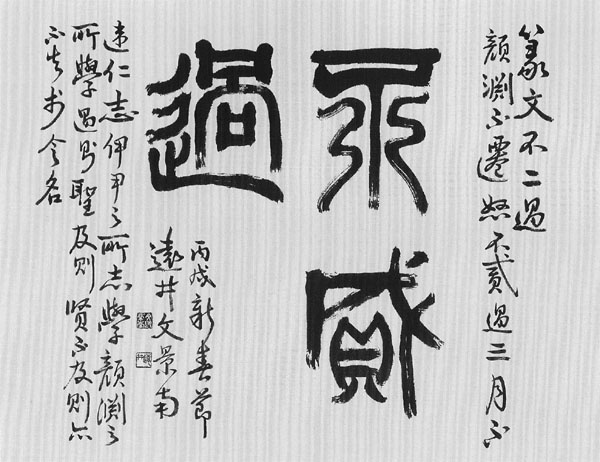 篆文不二過
顔淵不遷怒不貳過三月不
不貳
過
違仁志伊尹之所志學顔淵之
所學過則聖及則賢不及則亦
不失於令名
丙戌新春節
遠井文景南